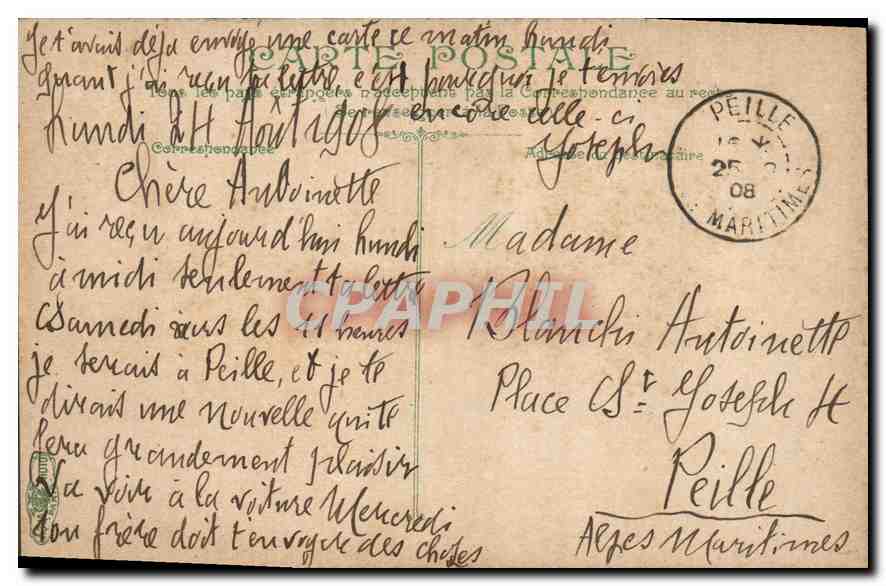 Je t'avais déja envoyé une carte ce matin lundi
CARTE POSTALE
quant j'ai reçu ta lettre, c'est pourquoi je t'envoies
Tous les pays étrangers n'acceptent pas la Correspondance au recto
lundi 24 Août 1908 encore celle-ci
Joseph
Correspondance
Adresse du destinataire
PEILLE
25
08
MARITIMES
Chère Antoinette
J'ai reçu aujourd'hui lundi
à midi seulement ta lettre
Samedi vers les 11 heures
je serais à Peille, et je te
dirais une nouvelle qui te
fera grandement plaisir
Va voir à la voiture Mercredi
ton frère doit t'envoyer des choses
Madame
Blanchi Antoinette
Place St Joseph 4
Peille
Alpes Maritimes
CPAPHIL